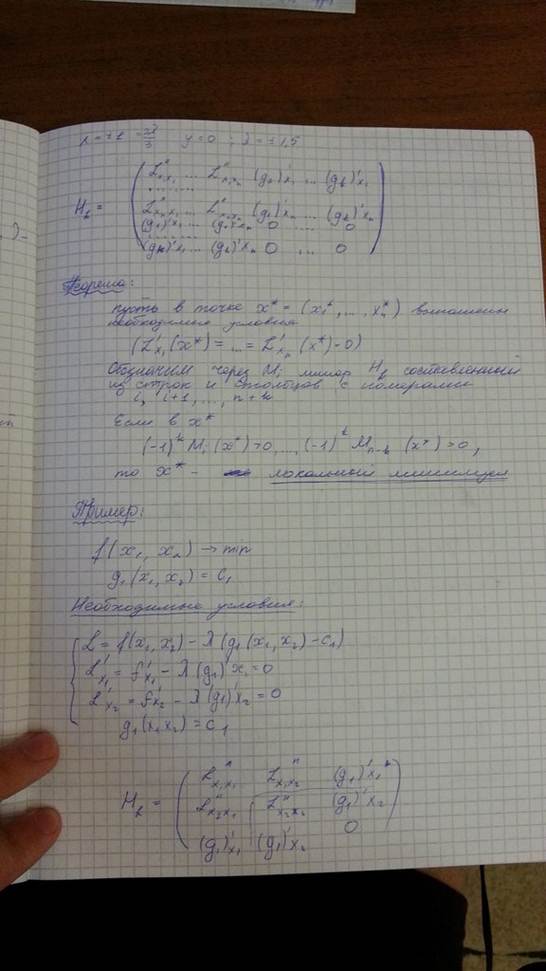 y=0 ; λ=±1,5
H_L = ( L''_{x₁x₁} ... L''_{x₁xₙ} (g₁)'x₁ ... (gₖ)'x₁
..........
L''_{xₙx₁} ... L''_{xₙxₙ} (g₁)'xₙ ... (gₖ)'xₙ
(g₁)'x₁ ... (g₁)'xₙ 0 ... 0
..........
(gₖ)'x₁ ... (gₖ)'xₙ 0 ... 0 )
Теорема:
пусть в точке x* = (x₁*, ..., xₙ*) выполнены
необходимые условия
(L'x₁(x*) = ... = L'xₙ(x*) = 0)
Обозначим через Mᵢ минор H_L составленный
из строк и столбцов с номерами
i, i+1, ..., n+k
Если в x*
(-1)ᵏ M₁(x*) > 0, ..., (-1)ᵏ Mₙ₋ₖ(x*) > 0,
то x* - локальный минимум
Пример:
f(x₁, x₂) → min
g₁(x₁, x₂) = c₁
Необходимые условия:
{ L = f(x₁, x₂) - λ(g₁(x₁, x₂) - c₁)
L'x₁ = f'x₁ - λ(g₁)'x₁ = 0
L'x₂ = f'x₂ - λ(g₁)'x₂ = 0
g₁(x₁ x₂) = c₁
H_L = ( L''_{x₁x₁} L''_{x₁x₂} (g₁)'x₁
L''_{x₂x₁} L''_{x₂x₂} (g₁)'x₂
(g₁)'x₁ (g₁)'x₂ 0 )